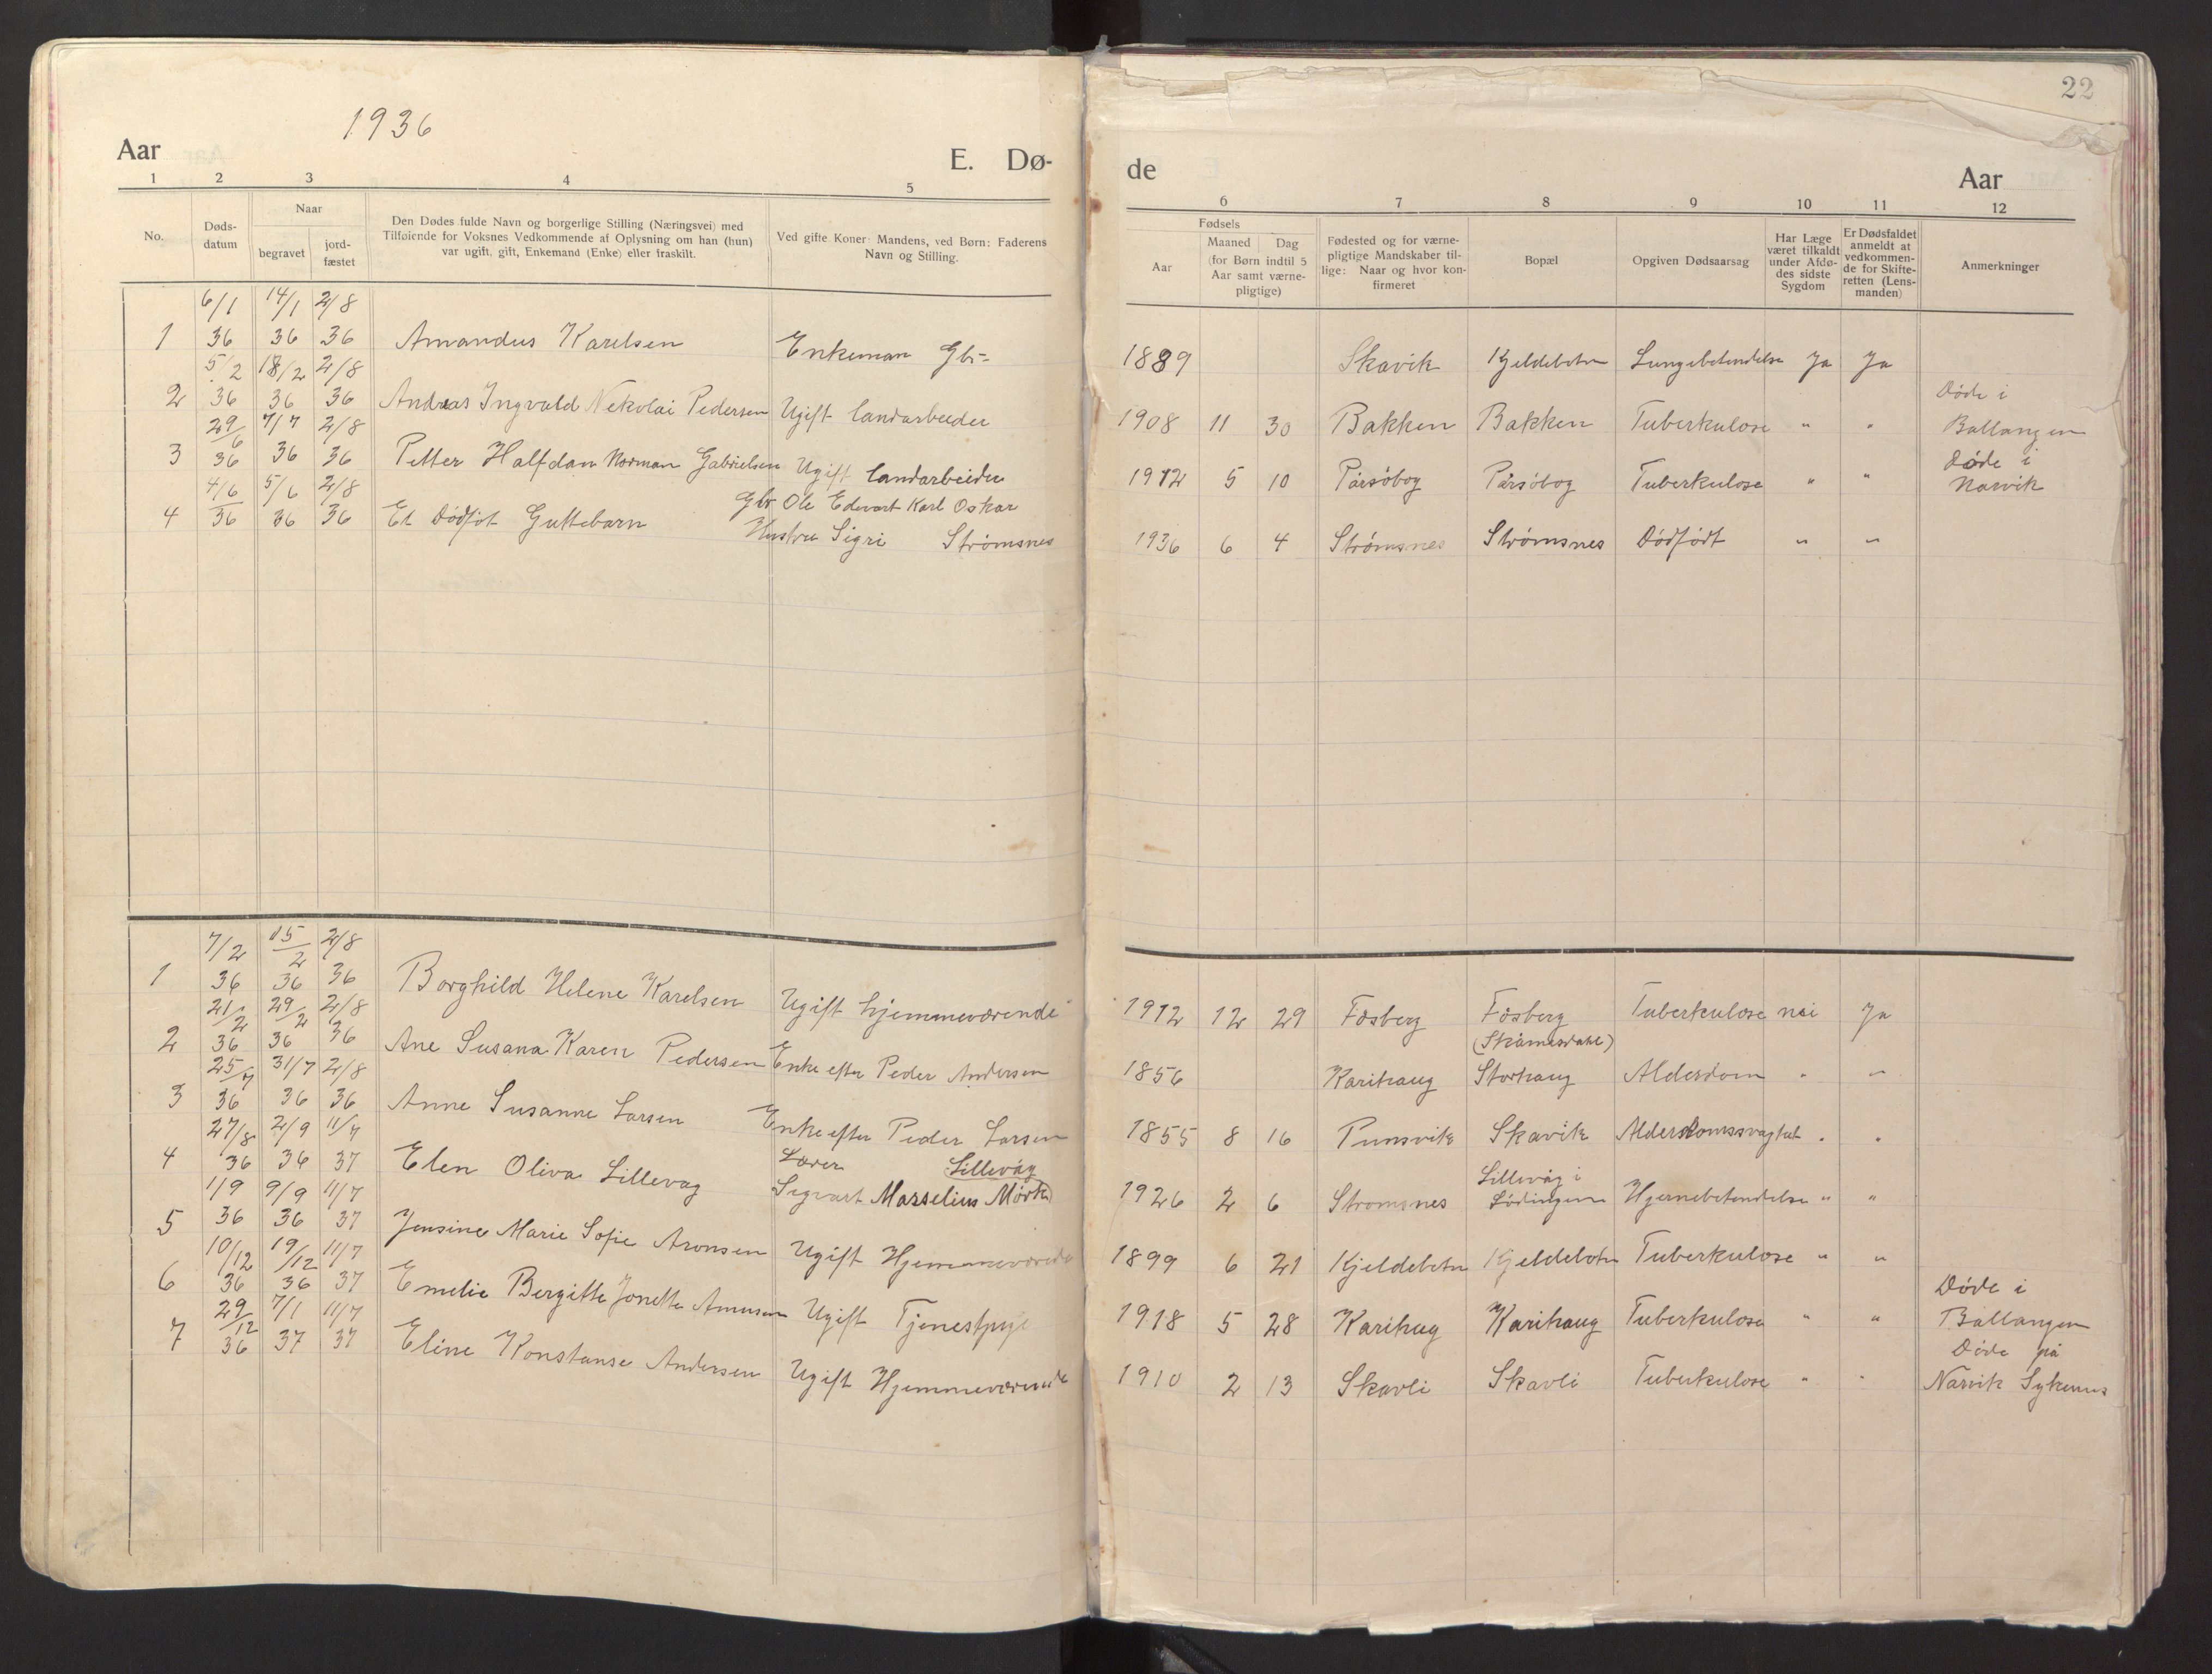 22
1936
Aar
E. Dø-
de
Aar
1 2 3 4 5
6 7 8 9 10 11 12
No.
Døds-
datum
Naar
begravet
jord-
fæstet
Den Dødes fulde Navn og borgerlige Stilling (Næringsvei) med
Tilføiende for Voksnes Vedkommende af Oplysning om han (hun)
var ugift, gift, Enkemand (Enke) eller fraskilt.
Ved gifte Koner: Mandens, ved Børn: Faderens
Navn og Stilling.
Fødsels
Aar
Maaned Dag
(for Børn indtil 5
Aar samt værne-
pligtige)
Fødested og for værne-
pligtige Mandskaber til-
lige: Naar og hvor kon-
firmeret
Bopæl
Opgiven Dødsaarsag
Har Læge
været tilkaldt
under Afdø-
des sidste
Sygdom
Er Dødsfaldet
anmeldt at
vedkommen-
de for Skifte-
retten (Lens-
manden)
Anmerkninger
6/1 14/1 2/8
1 36 36 36 Amandus Karelsen Enkeman Gbr- 1889 Skavik Kjeldebotn Lungebetendelse Ja Ja
5/2 18/2 2/8
Døde i
2 36 36 36 Andreas Ingvald Nekolai Pedersen Ugift landarbeider 1908 11 30 Bakken Bakken Tuberkulose " " Ballangen
29/6 7/7 2/8
Døde i
3 36 36 36 Petter Halfdan Norman Gabrielsen Ugift landarbeider 1912 5 10 Pårsöbog Pårsöbog Tuberkulose " " Narvik
4/6 5/6 2/8
Gbr Ole Edevart Karl Oskar
4 36 36 36 Et Dødføt Guttebarn Hustru Sigri Strømsnes 1936 6 4 Strømsnes Strømsnes Dødfødt " "
7/2 15/2 2/8
1 36 36 36 Borghild Helene Karelsen Ugift hjemmeværende 1912 12 29 Fosberg Fosberg Tuberkulose nei Ja
21/2 29/2 2/8
2 36 36 36 Ane Susana Karen Pedersen Enke efter Peder Andersen 1856 Karihaug Storhaug Alderdom " "
25/7 31/7 2/8
3 36 36 36 Anne Susanne Larsen Enke efter Peder Larsen 1855 8 16 Punsvik Skavik " "
27/8 2/9 11/7
Lærer Lillevåg
Lillevåg i
4 36 36 37 Elen Oliva Lillevag Sigvart Marselius Mörk 1926 2 6 Stromsnes Lødingen Hjernebetendelse " "
1/9 9/9 11/7
5 36 36 37 Jensine Marie Sofie Aronsen Ugift Hjemmeværende 1899 6 21 Kjeldebotn Kjeldebotn Tuberkulose " "
10/12 19/12 11/7
Døde i
6 36 36 37 Emelie Bergitte Jonette Amunsen Ugift Tjenestpige 1918 5 28 Karihug Karihaug Tuberkulose " " Ballangen
29/12 7/1 11/7
Døde på
7 36 37 37 Eline Konstanse Andersen Ugift Hjemmeværende 1910 2 13 Skavli Skavli Tuberkulose " " Narvik Sykehus